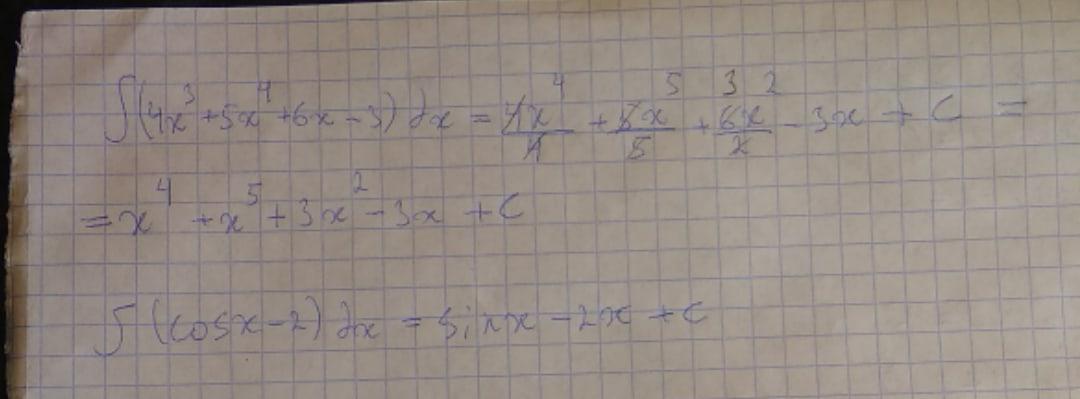 ∫(4x³+5x⁴+6x-3)dx = 4x⁴/4 + 5x⁵/5 + 6x²/2 - 3x + C =
= x⁴ + x⁵ + 3x² - 3x + C
∫(cosx-2)dx = sinx - 2x + C